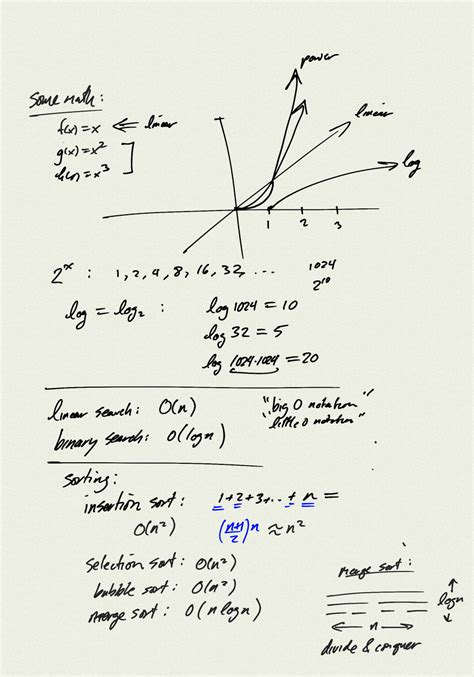 power
some math:
linear
f(x) = x ⟸ linear
g(x) = x²
h(x) = x³
log
1 2 3
2ˣ : 1, 2, 4, 8, 16, 32, ...
1024
2¹⁰
log = log₂ :
log 1024 = 10
log 32 = 5
log 1024·1024 = 20
linear search: O(n)
"big O notation"
"little o notation"
binary search: O(log n)
sorting:
insertion sort: 1+2+3+..+n =
O(n²) (n+1/2)n ≈ n²
selection sort: O(n²)
bubble sort: O(n²)
merge sort: O(n log n)
merge sort:
log n
n
divide & conquer